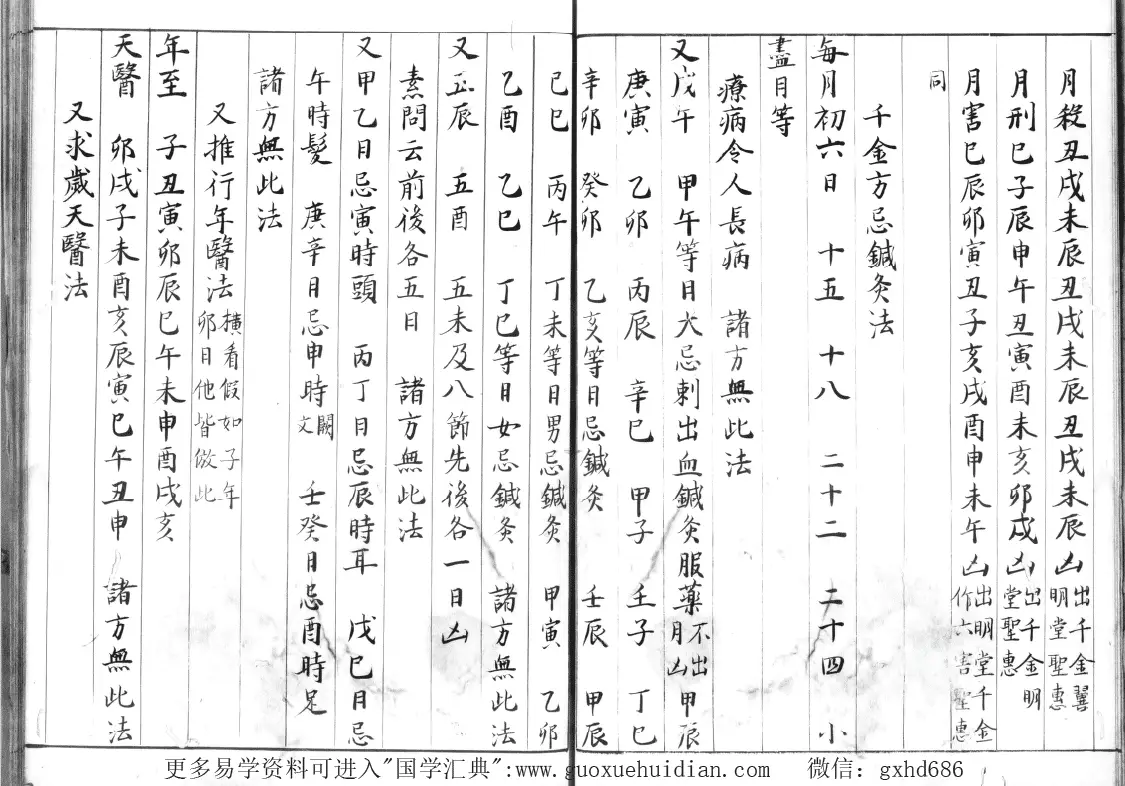 月殺丑戌未辰丑戌未辰丑戌未辰凶出千金翼明堂聖惠
月刑巳子辰申午丑寅酉未亥卯戌凶出千金明堂聖惠
月害巳辰卯寅丑子亥戌酉申未午凶出明堂千金作六害聖惠
同
千金方忌鍼灸法
每月初六日 十五 十八 二十二 二十四 小
盡日等
療病令人長病 諸方無此法
又戊午 甲午等日大忌刺出血鍼灸服藥不出月凶 甲辰
庚寅 乙卯 丙辰 辛巳 甲子 壬子 丁巳
辛卯 癸卯 乙亥等日忌鍼灸 壬辰 甲辰
巳巳 丙午 丁未等日男忌鍼灸 甲寅 乙卯
乙酉 乙巳 丁巳等日女忌鍼灸 諸方無此法
又五辰 五酉 五未及八節先後各一日凶
素問云前後各五日 諸方無此法
又甲乙日忌寅時頭 丙丁日忌辰時耳 戊巳日忌
午時髮 庚辛日忌申時闕文 壬癸日忌酉時足
諸方無此法
又推行年醫法橫看假如子年卯日他皆倣此
年至 子丑寅卯辰巳午未申酉戌亥
天醫 卯戌子未酉亥辰寅巳午丑申 諸方無此法
又求歲天醫法
更多易学资料可进入"国学汇典":www.guoxuehuidian.com 微信：gxhd686